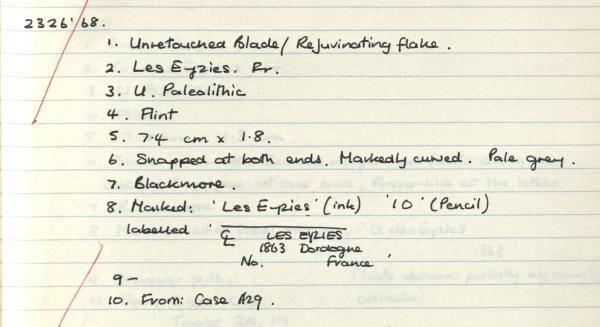 2326'68.
1. Unretouched Blade/ Rejuvinating flake.
2. Les Eyzies. Fr.
3. U. Paleolithic
4. Flint
5. 7.4 cm x 1.8.
6. Snapped at both ends. Markedly curved. Pale grey.
7. Blackmore.
8. Marked: 'Les Eyzies' (ink) '10' (Pencil)
labelled LES EYZIES
1863 Dordogne
No. France '
9 -
10. From: Case A29.